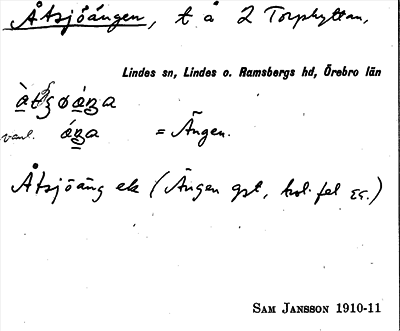 Åtsjöängen, t å 2 Torphyttan,
Lindes sn, Lindes o. Ramsbergs hd, Örebro län
vanl. = Ängen.
Åtsjöäng ek (Ängen gst, kol. fel
SAM JANSSON 1910-11